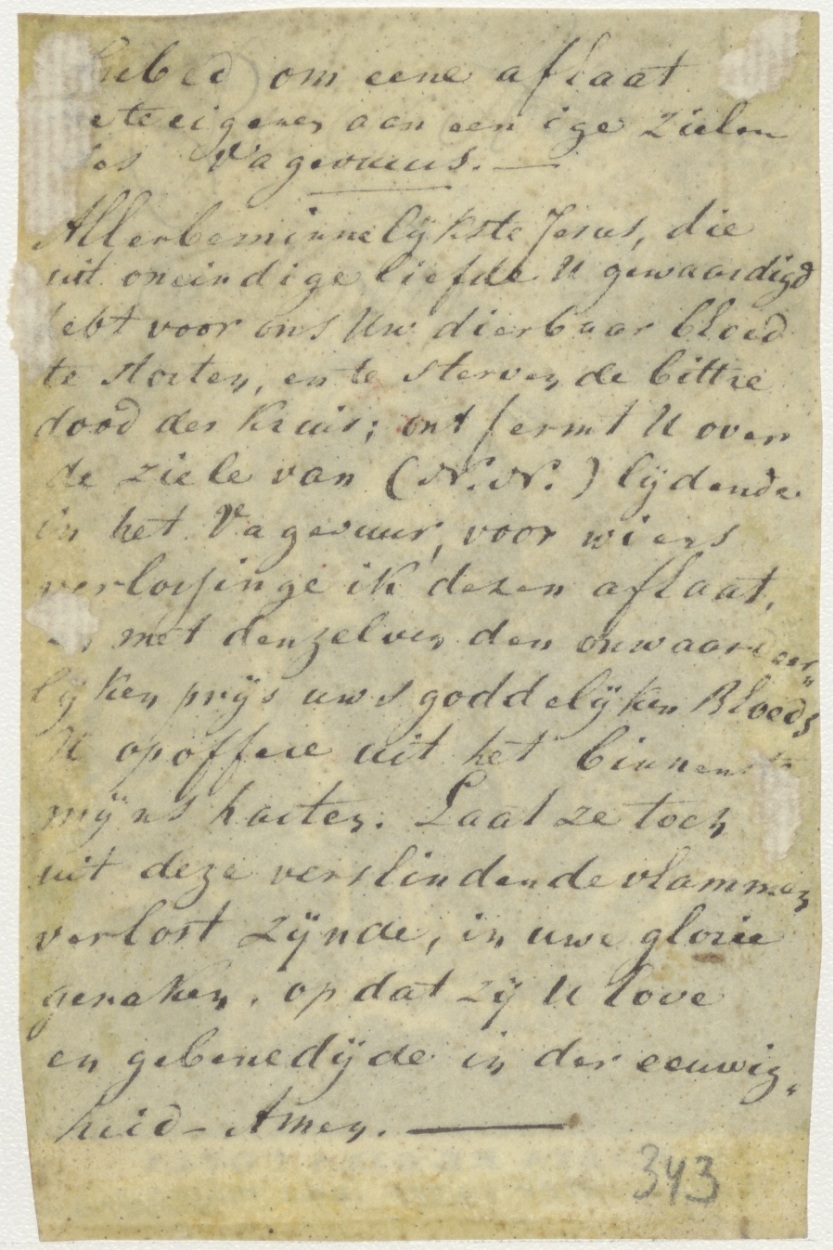 Gebed om eene aflaat
te eigenen aan een ige Zielen
des Vagevuurs. —
Allerbeminnelijkste Jesus, die
uit oneindige liefde U gewaardigd
hebt voor ons Uw dierbaar bloed
te storten, en te sterven de bittre
dood des Kruis; ontfermt U over
de ziele van (N. N.) lijdende
in het Vagevuur, voor wiens
verlossinge ik dezen aflaat,
en met denzelven den onwaardeer„
lijken prijs uws goddelijken Bloeds
U opoffere uit het binnenste
mijns harten. Laat ze toch
uit deze verslindende vlammen
verlost zijnde, in uwe glorie
geraken, opdat zij U love
en gebenedijde in der eeuwig„
heid – Amen. —
343